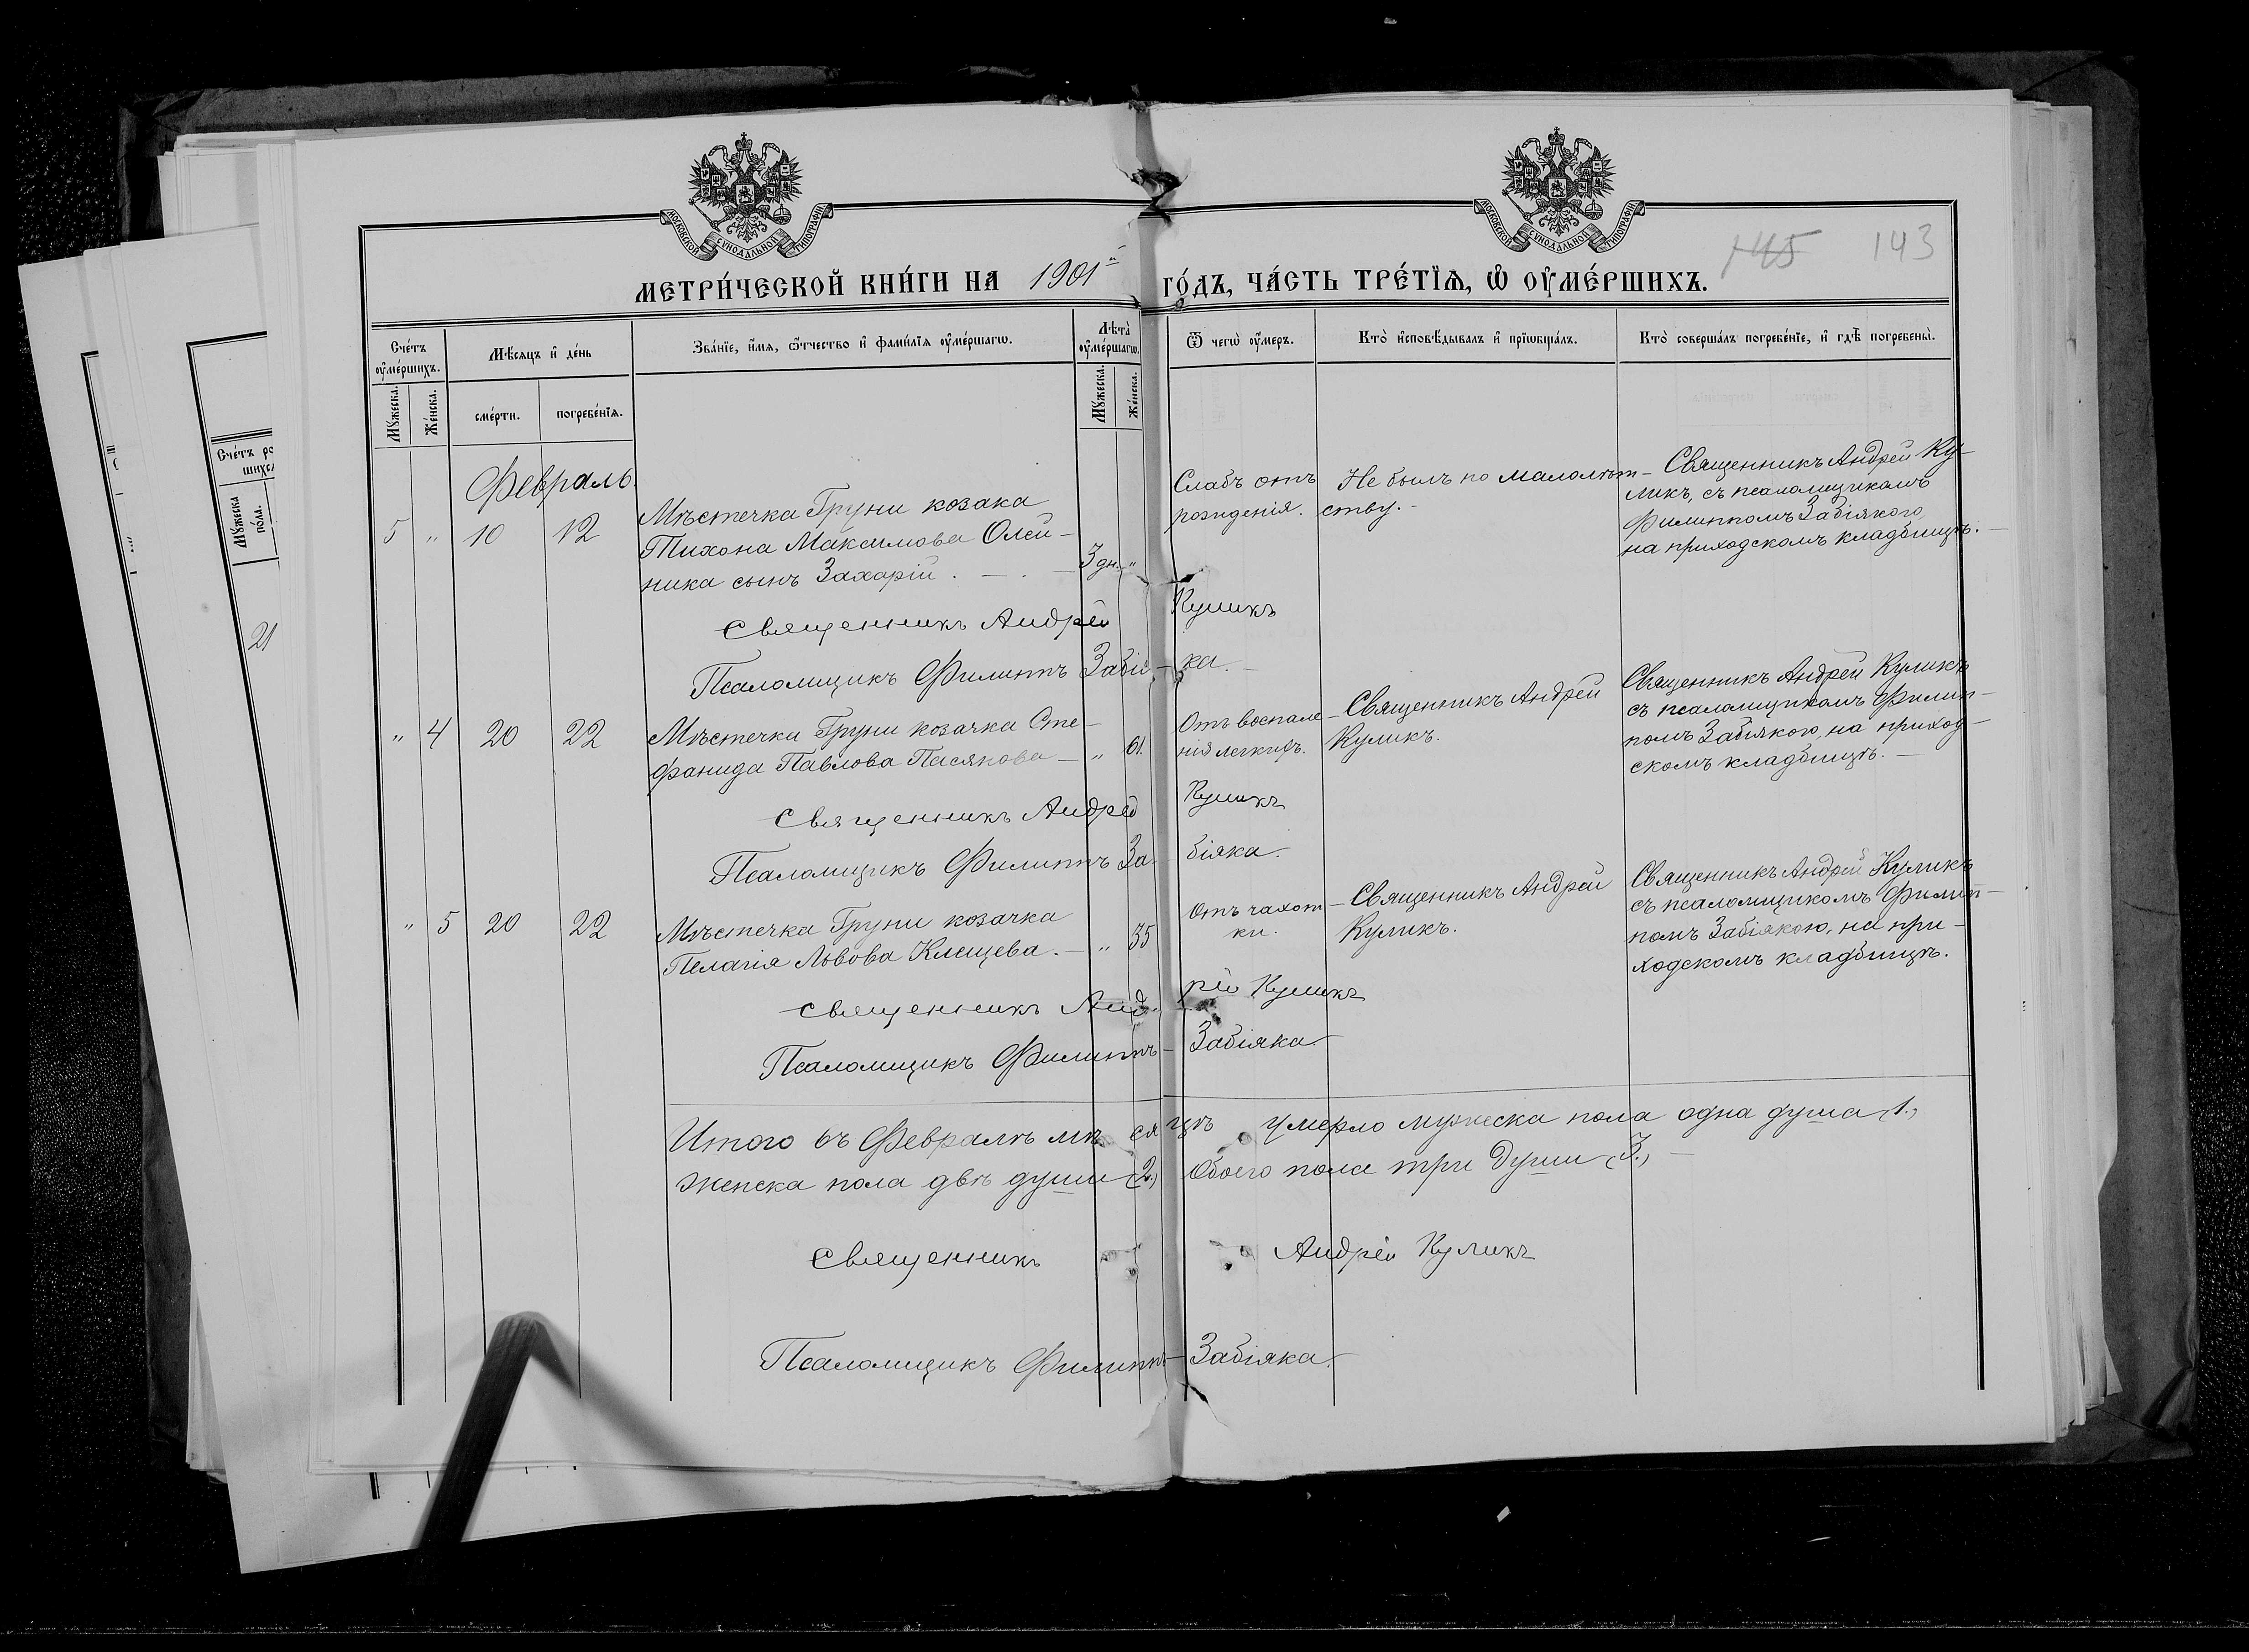 МОСКОВСКОЙ СѴНОДАЛЬНОЙ ТИПОГРАФІИ
МОСКОВСКОЙ СѴНОДАЛЬНОЙ ТИПОГРАФІИ
145 143
МЕТРИ́ЧЕСКОЙ КНИ́ГИ НА 1901й ГО́ДЪ, ЧА́СТЬ ТРЕ́ТЇѦ, Ѡ ОУ҆МЕ́РШИХЪ.
Сче́тъ оу҆ме́ршихъ.
Мѣ́сяцъ и҆ де́нь
Зва́нїе, и҆́мя, ѻ҆́тчество и҆ фами́лїя оу҆ме́ршагѡ.
Лѣта̀ оу҆ме́ршагѡ.
Ѿ чегѡ̀ оу҆́меръ.
Кто̀ и҆сповѣ́дывалъ и҆ прїѡбща́лъ.
Кто̀ соверша́лъ погребе́нїе, и҆ гдѣ̀ погребены̀.
Мꙋ́жеска.
Же́нска.
сме́рти.
погребе́нїя.
Мꙋ́жеска.
Же́нска.
Февраль.
5 " 10 12
Мѣстечка Груни козака
Тихона Максимова Олей-
ника сынъ Захарій . — . —
3 дн. "
Слабъ отъ
рожденія.
Не былъ по малолѣт-
ству. -
Священникъ Андрей Ку-
ликъ, съ псаломщикомъ
Филиппомъ Забіякого,
на приходскомъ кладбищѣ. —
Священникъ Андрей Куликъ
Псаломщикъ Филиппъ Забія-ка. —
" 4 20 22
Мѣстечки Груни козачка Сте-
фанида Павлова Пасякова —
" 61.
Отъ воспале-
нія легкихъ.
Священникъ Андрей
Куликъ.
Священникъ Андрей Куликъ
съ псаломщикомъ Филип-
помъ Забіякою, на приход-
скомъ кладбищѣ. —
Священникъ Андрей Куликъ
Псаломщикъ Филиппъ За-біяка.
" 5 20 22
Мѣстечка Груни козачка
Пелагія Львова Клещева. —
" 35
Отъ чахот-
ки.
Священникъ Андрей
Куликъ.
Священникъ Андрей Куликъ
съ псаломщикомъ Филип-
помъ Забіякою, на при-
ходскомъ кладбищѣ.
Священникъ Анд-рей Куликъ
Псаломщикъ Филиппъ — Забіяка
Итого въ Февралѣ мѣсяцѣ умерло мужеска пола одна душа (1.)
женска пола двѣ души (2,) Обоего пола три души (3.) —
Священникъ Андрей Куликъ
Псаломщикъ Филиппъ — Забіяка.
Сче́тъ ро
шихс
Мꙋ́жеска
по́ла.
21